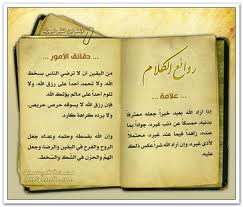 روائع الكلام
... علامة ...
إذا أراد الله بعبد خيراً جعله معترفاً
بذنبه، ممسكاً عن ذنب غيره، جواداً بما
عنده، زاهداً فيما عند غيره، محتملاً
لأذى غيره، وإن أراد الله شراً عكس ذلك
عليه.
... دقائق الأمور ...
من اليقين أن لا ترضي الناس بسخط
الله، ولا تحمد أحداً على رزق الله، ولا
تلوم أحداً على مالم يؤتك الله.
فإن رزق الله لا يسوقه حرص حريص،
ولا يرده كراهة كاره.
وإن الله بقسطه وحلمه وعدله جعل
الروح والفرح في اليقين والرضا، وجعل
الهم والحزن في الشك والسخط.